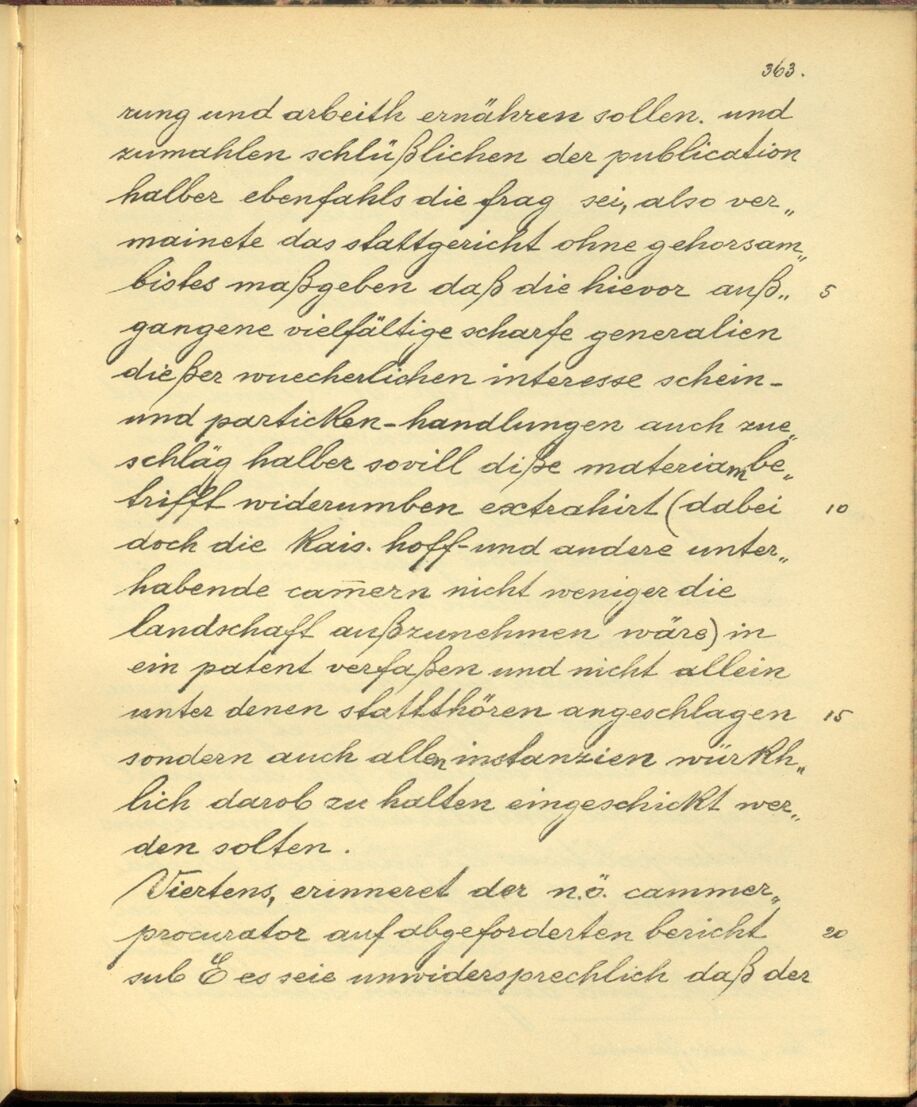 363.
rung und arbeith ernähren sollen. und
zumahlen schlüßlichen der publication
halber ebenfahls die frag sei, also ver„
mainete das stattgericht ohne gehorsam„
bistes maßgeben daß die hievor auß„ 5
gangene vielfältige scharfe generalien
dießer wuecherlichen interesse schein-
und particken-handlungen auch zue„
schläg halber sovill diße materiam be„
trifft widerumben extrahirt (dabei 10
doch die Kais. hoff- und andere unter„
habende cam̄ern nicht weniger die
landschaft außzunehmen wäre) in
ein patent verfaßen und nicht allein
unter denen stattthören angeschlagen 15
sondern auch allen instanzien würkh„
lich darob zu halten eingeschickt wer„
den solten.
Viertens, erinneret der n.ö. cammer„
procurator auf abgeforderten bericht 20
sub E es seie unwidersprechlich daß der